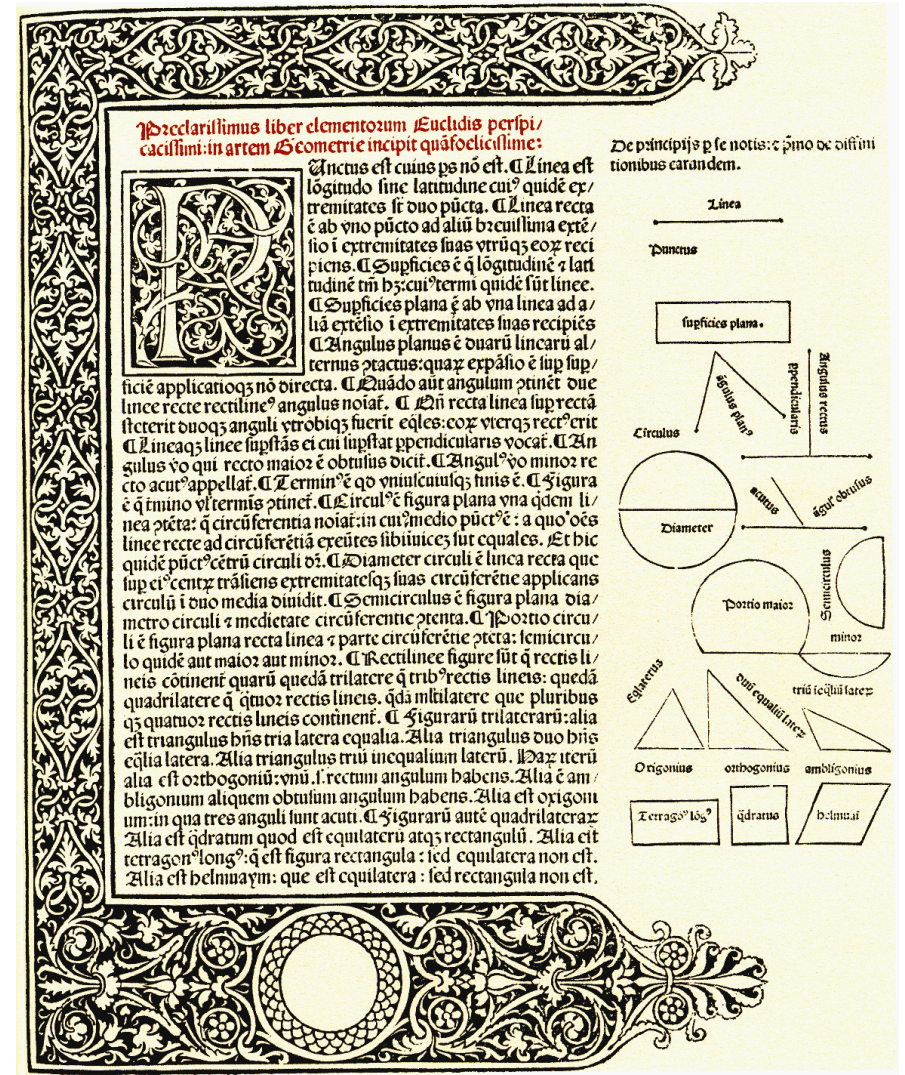 Preclarissimus liber elementorum Euclidis perspi/
cacissimi: in artem Geometrie incipit quãfoelicissime:
Punctus est cuius ps nõ est. ¶ Linea est
lõgitudo sine latitudine cuiꝰ quidẽ ex/
tremitates st duo pũcta. ¶ Linea recta
ẽ ab vno pũcto ad aliũ breuissima extẽ/
sio ĩ extremitates suas vtrũqꝫ eoꝝ reci
piens. ¶ Supficies ẽ q̃ lõgitudinẽ ⁊ lati
tudinẽ tm̃ hꝫ: cuiꝰ termi quidẽ sũt linee.
¶ Supficies plana ẽ ab vna linea ad a/
liã extẽsio ĩ extremitates suas recipiẽs
¶ Angulus planus ẽ duarũ linearũ al/
ternus ꝯtactus: quaꝝ expãsio ẽ sup sup/
ficiẽ applicatioqꝫ nõ directa. ¶ Quãdo aũt angulum ꝯtinẽt due
linee recte rectilineꝰ angulus noiat̃. ¶ Qñ recta linea sup rectã
steterit duoqꝫ anguli vtrobiqꝫ fuerit eq̃les: eoꝝ vterqꝫ rectꝰ erit
¶ Lineaqꝫ linee supstãs ei cui supstat ppendicularis vocat̃. ¶ An
gulus vo qui recto maior ẽ obtusus dicit̃. ¶ Angulꝰ vo minor re
cto acutꝰ appellat̃. ¶ Terminꝰ ẽ qd vniuscuiusqꝫ finis ẽ. ¶ Figura
ẽ q̃ tmino vl̃ termis ꝯtinet̃. ¶ Circulꝰ ẽ figura plana vna q̃dem li/
nea ꝯtẽta: q̃ circũferentia noiat̃: in cuiꝰ medio pũctꝰ ẽ: a quo oẽs
linee recte ad circũferẽtiã exeũtes sibiinuicẽ sũt equales. Et hic
quidẽ pũctꝰ cẽtrũ circuli dr̃. ¶ Diameter circuli ẽ linea recta que
sup eiꝰ centꝝ trãsiens extremitatesqꝫ suas circũferẽtie applicans
circulũ ĩ duo media diuidit. ¶ Semicirculus ẽ figura plana dia/
metro circuli ⁊ medietate circũferentie ꝯtenta. ¶ Portio circu/
li ẽ figura plana recta linea ⁊ parte circũferẽtie ꝯtẽta: semicircu/
lo quidẽ aut maior aut minor. ¶ Rectilinee figure sũt q̃ rectis li/
neis cõtinent̃ quarũ quedã trilatere q̃ tribꝰ rectis lineis: quedã
quadrilatere q̃ q̃tuor rectis lineis. q̃dã mltilatere que pluribus
qꝫ quatuor rectis lineis continent̃. ¶ Figurarũ trilaterarũ: alia
est triangulus hñs tria latera equalia. Alia triangulus duo hñs
eq̃lia latera. Alia triangulus triũ inequalium laterũ. Haꝝ iterũ
alia est orthogoniũ: vnũ .s. rectum angulum habens. Alia ẽ am/
bligonium aliquem obtusum angulum habens. Alia est oxigoni
um: in qua tres anguli sunt acuti. ¶ Figurarũ autẽ quadrilateraꝝ
Alia est q̃dratum quod est equilaterũ atqꝫ rectangulũ. Alia est
tetragonꝰ longꝰ: q̃ est figura rectangula: sed equilatera non est.
Alia est helmuaym: que est equilatera: sed rectangula non est.
De principijs p se notis: ⁊ pmo de diffini
tionibus earundem.
Linea
Punctus
supficies plana.
ãgulus planꝰ
ppendicularis
Angulus rectus
Circulus
Diameter
acutus
ãgulꝰ obtusus
Portio maior
Semicirculus
minor
Eq̃laterus
duũ equaliũ lateꝝ
triũ ieq̃liũ lateꝝ
Oxigonius
orthogonius
ambligonius
Tetragoꝰ lõgꝰ
q̃dratus